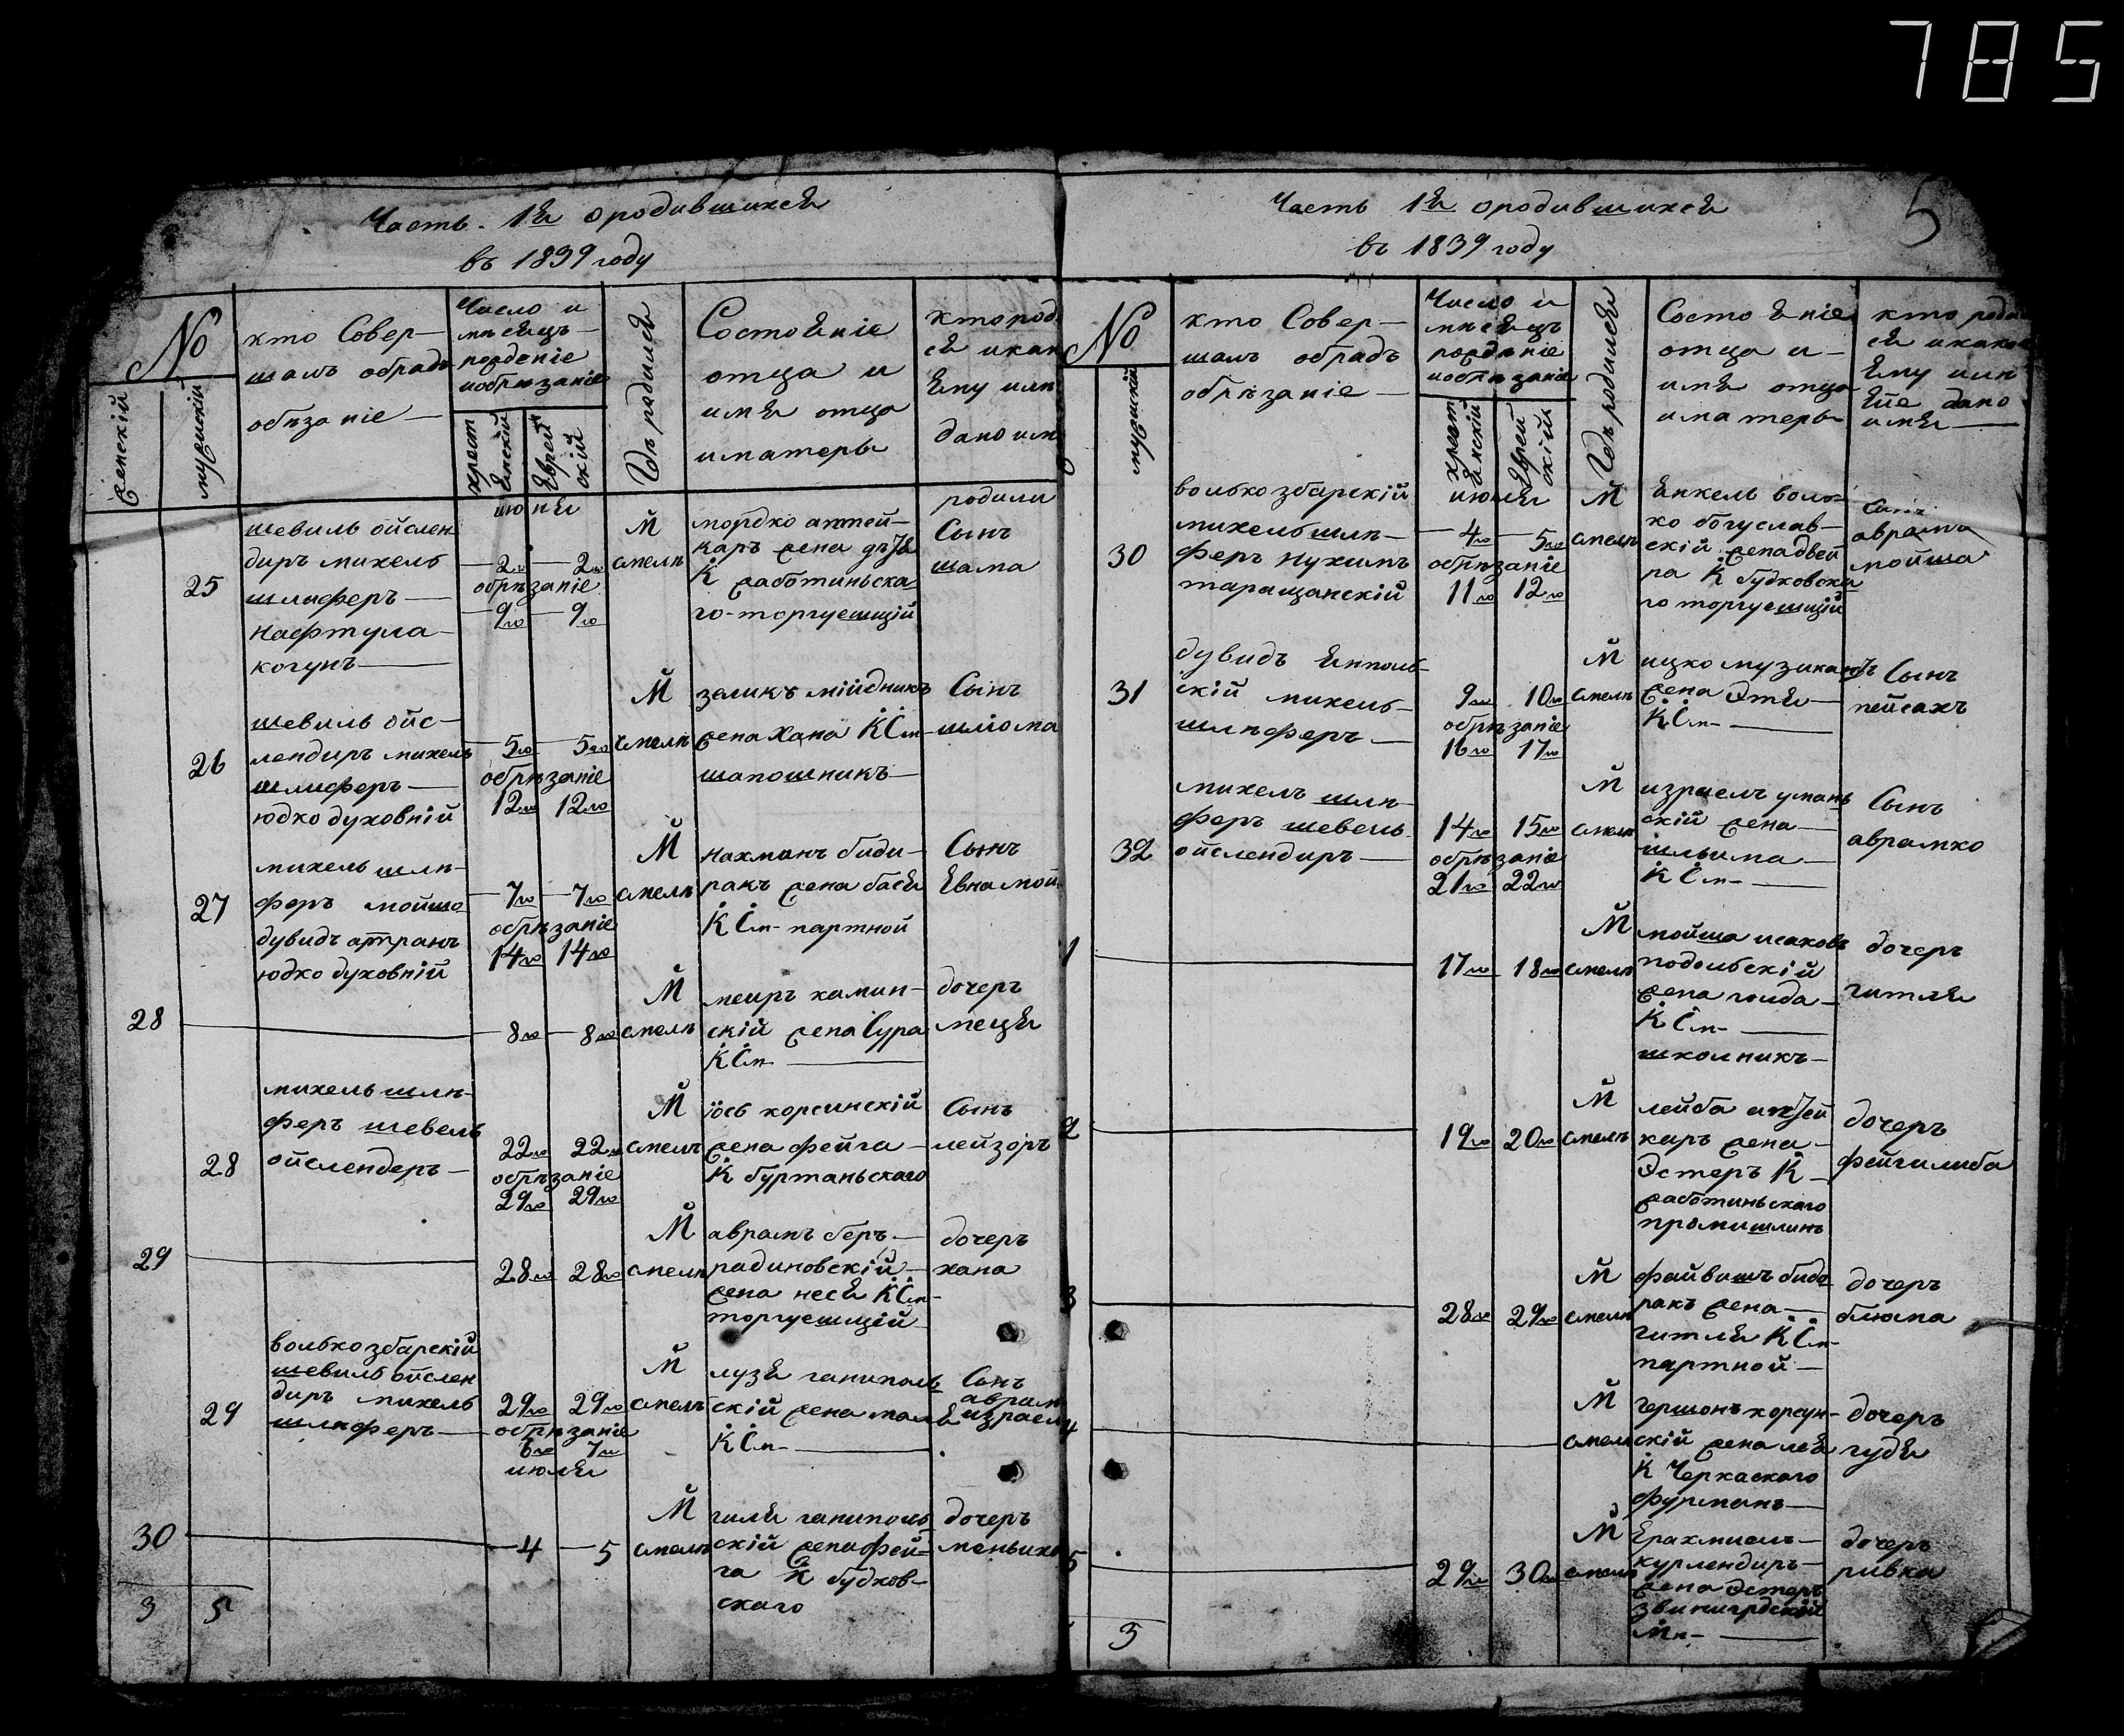 785
5
Часть 1я о родившихся
въ 1839 году
№
женскій
мужескій
кто Совер-
шалъ обрадъ
обѣзаніе
Число и
мѣсяцъ
рожденіе
и обрѣзаніе
христ
іянскій
Еврей
скій
Гдѣ родился
Состояніе
отца и
имя отца
и матеры
кто род
ся и как
Ему или
дано им
25
шевиль ойслен-
диръ михель
шлиферъ
Нафтула
когунъ
июня
2го 2го
обрѣзаніе
9го 9го
М
смелѣ
мордко аптей-
каръ жена
К работиньска
го торгуешщій
родили
Сынъ
шама
26
шевиль ойс-
лендиръ михель
шлиферъ
юдко духовній
5го 5го
обрѣзаніе
12го 12го
М
смелѣ
зеликъ мійдникъ
жена Хана К См
шапошникъ
Сынъ
шліома
27
михель шли-
феръ мойше
дувидъ
юдко духовній
7го 7го
обрѣзаніе
14го 14го
М
смелѣ
Нахманъ биди-
ракъ жена бася
К См партной
Сынъ
Евна мой
28
8го 8го
М
смелѣ
меиръ камин-
скій жена Сура
К См
дочеръ
мецы
28
михель шли-
феръ шевель
ойслендеръ
22го 22го
обрѣзаніе
29го 29го
М
смелѣ
іось корсинскій
жена фейга
К буртаньского
Сынъ
лейзоръ
29
28го 28го
М
смелѣ
аврамъ беръ
радиновскій
жена неся К См
торгуешщій
дочеръ
хана
29
волько збарскій
шевиль ойслен
диръ михель
шлиферъ
29го 29го
обрѣзаніе
6го 7го
июля
М
смелѣ
лузя ганиполь
скій жена маля
К См
Сынъ
аврам
израел
30
4 5
М
смелѣ
гиля ганиполь
скій жена фей-
га К будков-
скаго
дочеръ
меньихо
3 5
Часть 1я о родившихся
въ 1839 году
№
мужескій
кто Совер-
шалъ обрадъ
обрѣзаніе
Число и
мѣсяцъ
рожденіе
и обрѣзаніе
христ
іянскій
Еврей
скій
Гдѣ родился
Состояніе
отца и
имя отца
и матеры
кто роди
ся и како
Ему или
Ейе дано
имя
30
волько збарскій
михель шли-
феръ Нухимъ
таращанскій
июля
4го 5го
обрѣзаніе
11го 12го
М
смелѣ
Енкель воль-
ко богуслав-
скій жена двей
ра К будковска
го торгуешщій
Сынъ
аврамъ
мойша
31
дувидъ Ямполь-
скій михель
шлиферъ
9го 10го
обрѣзаніе
16го 17го
М
смелѣ
ицко музикантъ
жена Этя
К См
Сынъ
пейсахъ
32
михель шли-
феръ шевель
ойслендиръ
14го 15го
обрѣзаніе
21го 22го
М
смелѣ
израель умань
скій жена
шльима
К См
Сынъ
аврамко
1
17го 18го
М
смелѣ
мойша исаковъ
подольскій
жена голда
К См
школникъ
дочеръ
гитля
2
19го 20го
М
смелѣ
лейба аптей
каръ жена
Эстеръ К
работиньскаго
промишлинъ
дочеръ
фейгилиба
3
28го 29го
М
смелѣ
файвишъ бидо
ракъ жена
гитля К См
партной
дочеръ
блюма
4
М
смелѣ
гершонъ корсун-
скій жена лея
К Черкаского
фурманъ
дочеръ
гудя
5
29го 30го
М
смелѣ
Ерахмиель
курлендиръ
жена Эстеръ
звинигрдский
Мп
дочеръ
ривка
3